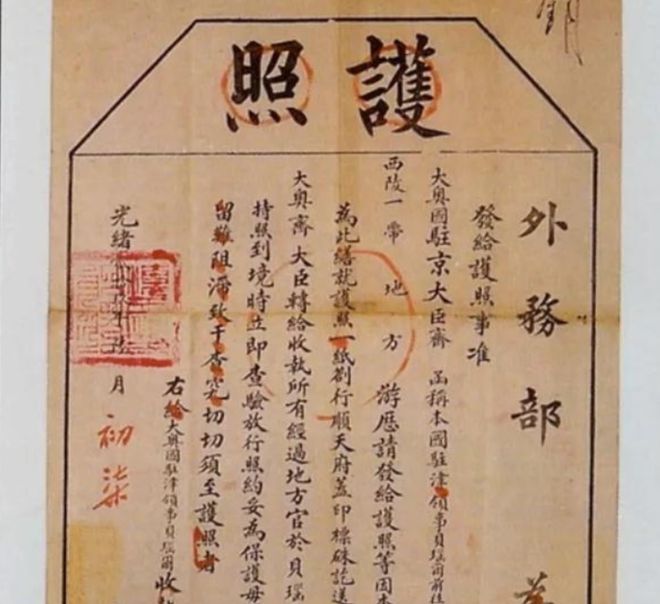 護照
外務部
發給護照事准
大奧國駐京大臣齊 函稱本國駐津領事貝瑙爾前往
西陵一帶 地方 游歷請發給護照等因本
為此繕就護照一紙劄行順天府蓋印標硃訖送
大奧齊大臣轉給收執所有經過地方官於貝瑙
持照到境時立即查驗放行照約妥為保護毋
留難阻滯致干查究切切須至護照者
右給大奧國駐津領事貝瑙爾收執
光緒 年 月
初柒